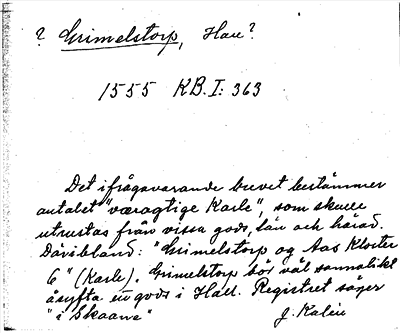 ? Grimelstorp, Hall?
1555 KB. I: 363
Det ifrågavarande brevet bestämmer
antalet "væragtige Karle", som skulle
utrustas från vissa gods, län och härad.
Däribland: "Grimelstorp og Aas Kloster
6" (Karle). Grimelstorp bör väl sannolikt
åsyfta ett gods i Hall. Registret säger
"i Skaane"
J. Kalén